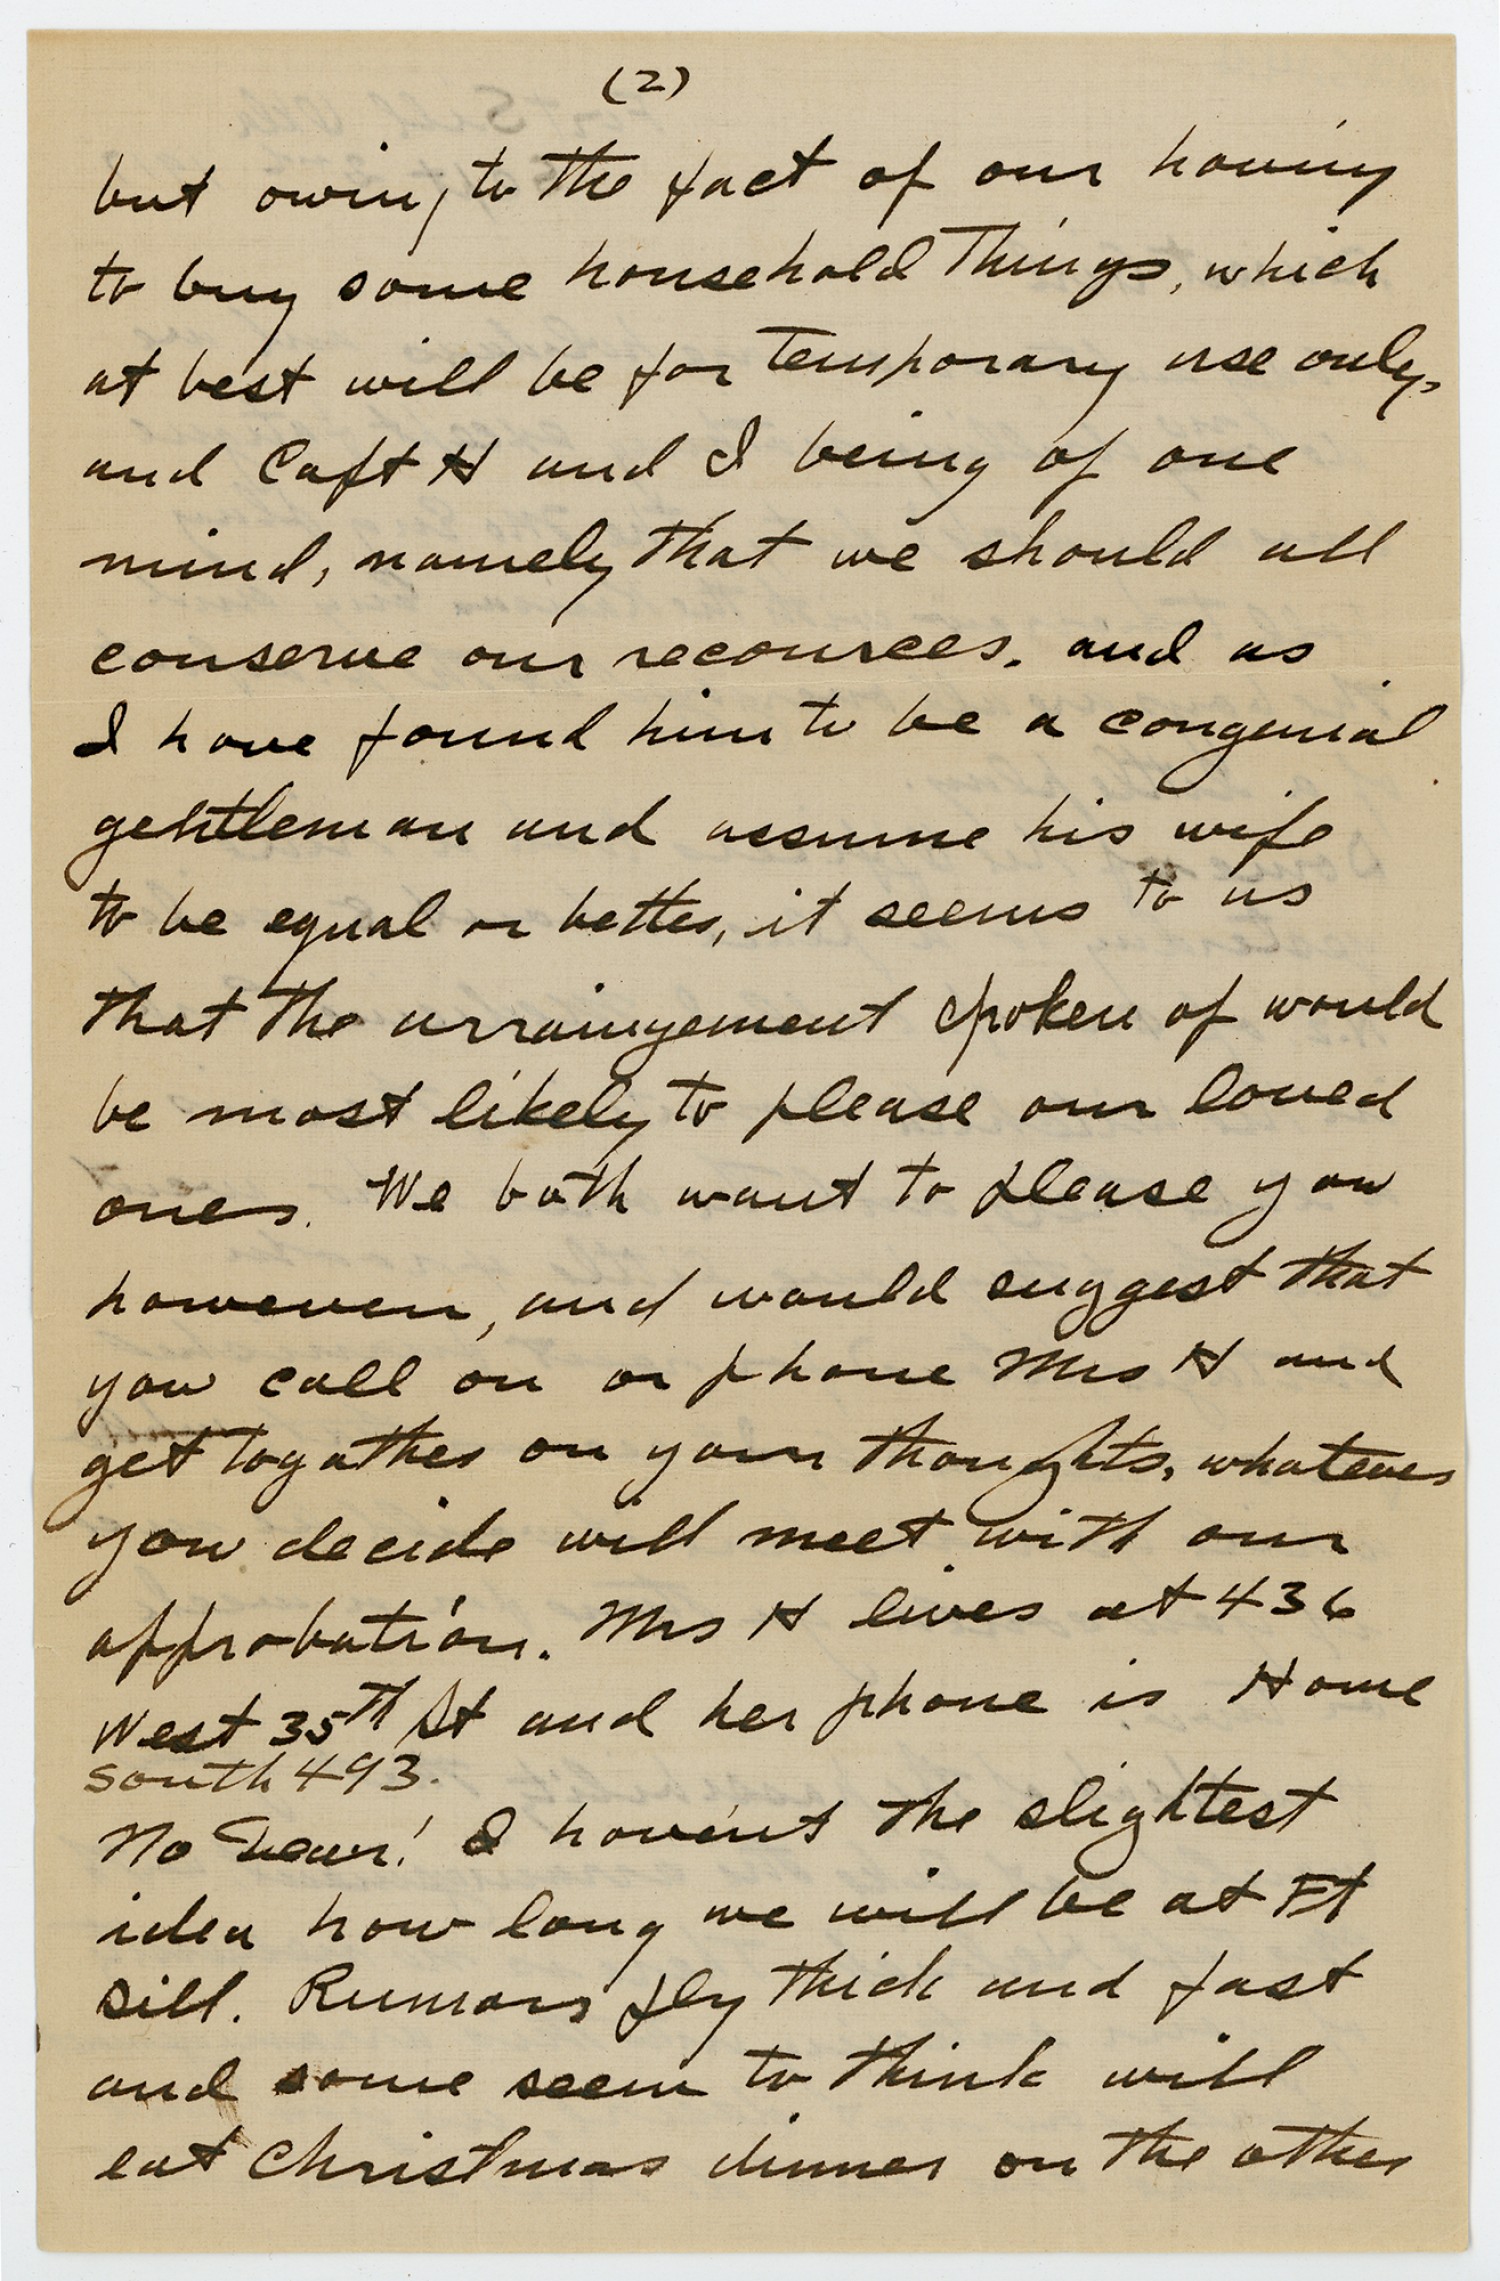 (2)
but owing to the fact of our having
to buy some household things, which
at best will be for temporary use only,
and Capt H and I being of one
mind, namely that we should all
conserve our recources. and as
I have found him to be a congenial
gentleman and assume his wife
to be equal or better, it seems to us
that the arraingement spoken of would
be most likely to please our loved
ones. We both want to please you
however, and would suggest that
you call on or phone Mrs H and
get togather on your thoughts, whatever
you decide will meet with our
approbation. Mrs H lives at 436
West 35th St and her phone is Home
South 493.
No Dear! I haven't the slightest
idea how long we will be at Ft
Sill. Rumors fly thick and fast
and some seem to think will
eat Christmas dinner on the other